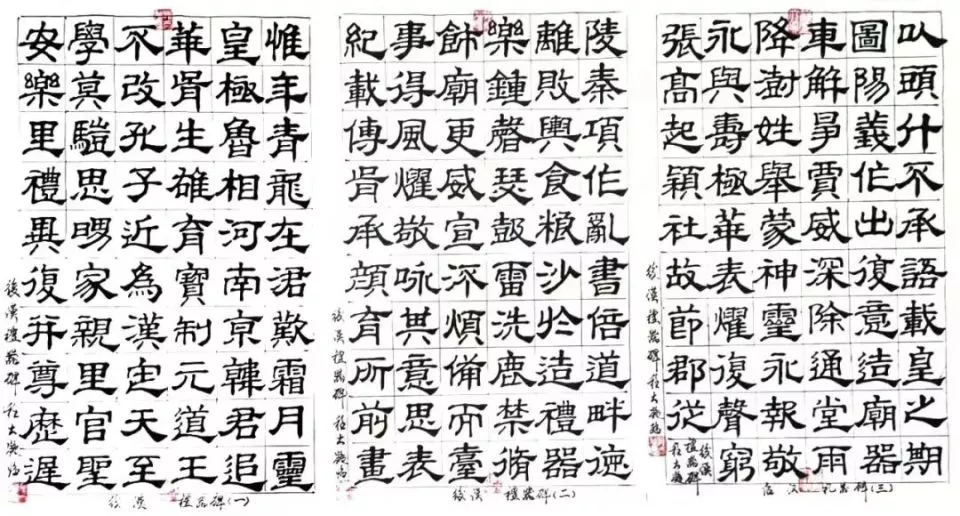 惟年青龍在涒歎霜月靈
皇極魯相河南京韓君追
華胥生雄育寶制元道王
不改孔子近為漢定天至
學莫驥思家親里官聖
安樂里禮異復并尊歷遲
後漢禮器碑
後漢 禮器碑(一)
陵秦項作亂書倍道畔德
離敗輿食粮沙於造禮器
樂鍾磬瑟鼓雷洗鹿禁脩
飾廟更威宣煩備而臺
事得風燿敬咏其意思表
紀載傳肯承顔育所前畫
後漢禮器碑
後漢 禮器碑(二)
以頭什不承語載皇之期
圖陽義作出復意造廟器
車解爭賈威深除通堂雨
降澍姓舉蒙神靈永報敬
永與壽極華表燿復聲窮
張高起穎社故節郡從
後漢禮器碑
後漢禮器碑
後漢 礼器碑(三)